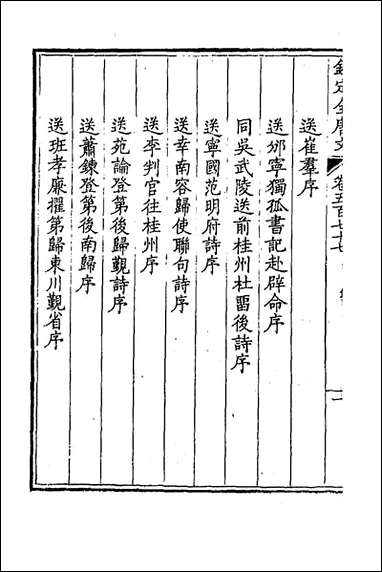 欽定全唐文 卷五百七十七
送崔羣序
送邠寧獨孤書記赴辟命序
同吳武陵送前桂州杜畱後詩序
送寧國范明府詩序
送幸南容歸使聯句詩序
送李判官往桂州序
送苑論登第後歸覲詩序
送蕭鍊登第後南歸序
送班孝廉擢第歸東川覲省序